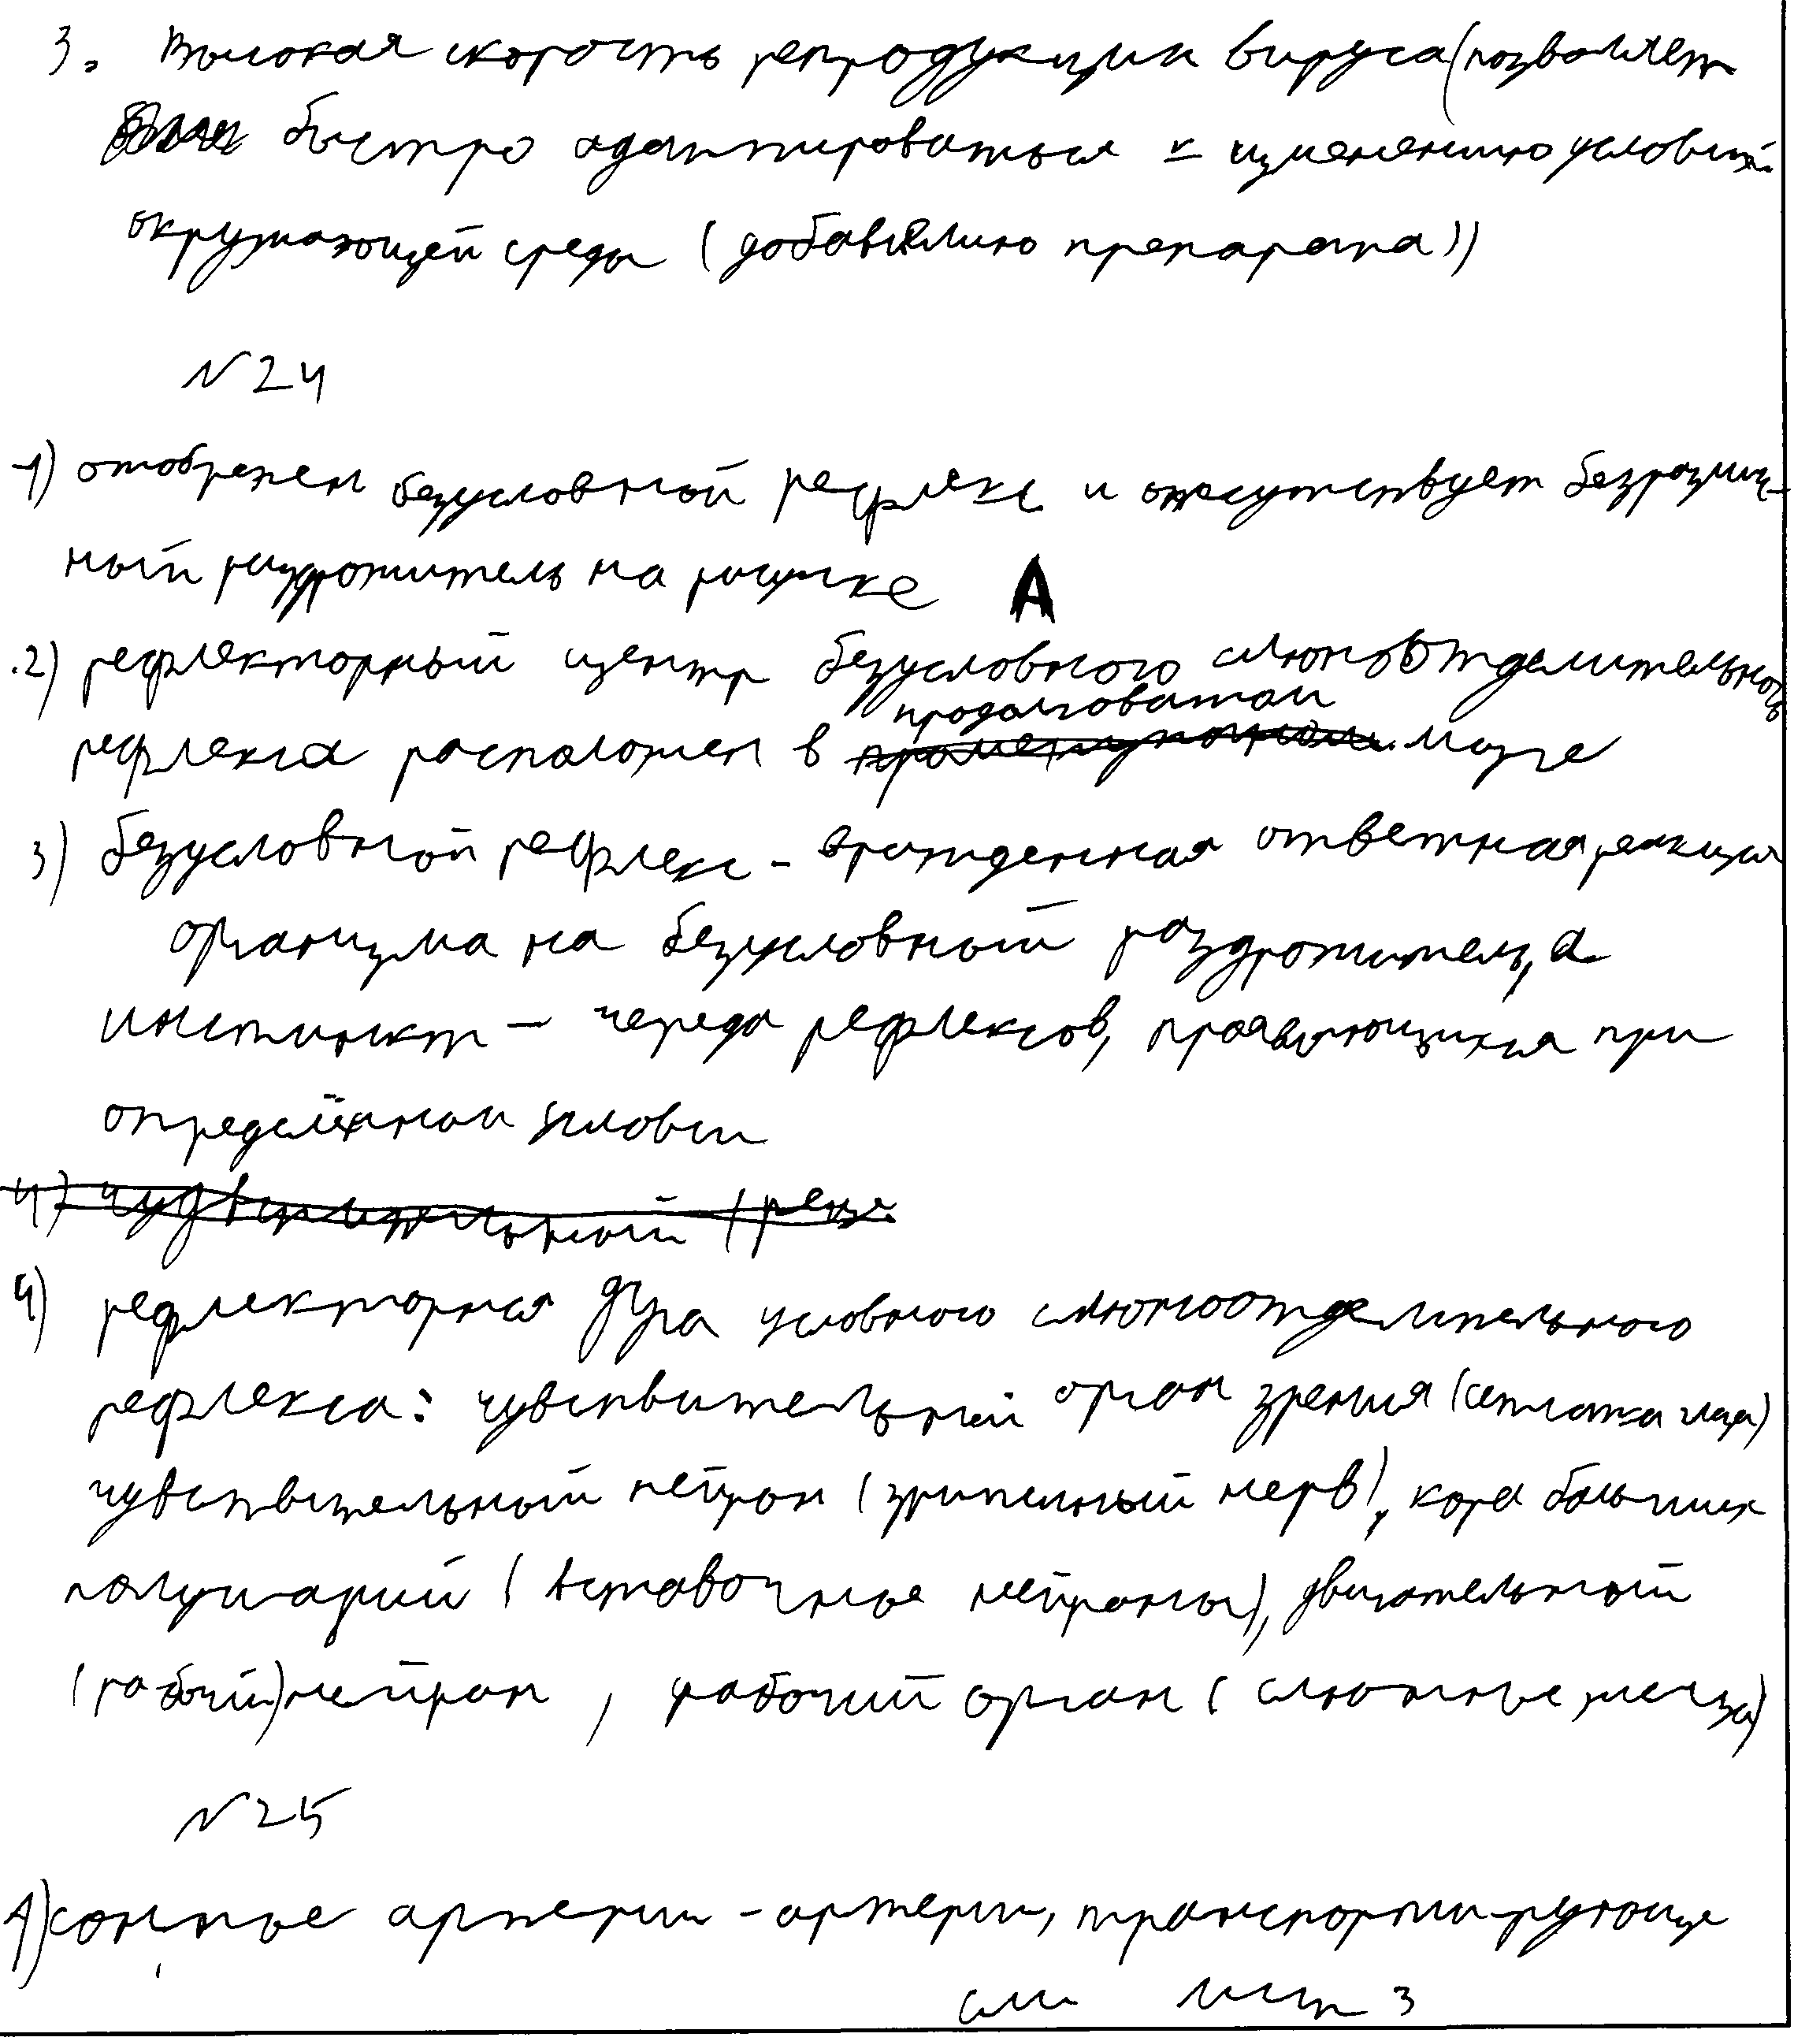 3. Высокая скорость репродукции вируса (позволяет
быстро адаптироваться к изменению условий
окружающей среды (добавлению препарата))
N24
1) отображен безусловный рефлекс и отсутствует безразлич-
ный раздражитель на рисунке А
2) рефлекторный центр безусловного слюноотделительного
рефлекса расположен в продолговатом мозге
3) безусловный рефлекс - врожденная ответная реакция
организма на безусловный раздражитель, а
инстинкт - череда рефлексов, проявляющихся при
определённом условии
4) чувствительный
4) рефлекторная дуга условного слюноотделительного
рефлекса: чувствительный орган зрения (сетчатка глаза)
чувствительный нейрон (зрительный нерв), кора больших
полушарий (вставочные нейроны), двигательный
(рабочий) нейрон, рабочий орган (слюнные железы)
N25
1) сонные артерии - артерии, транспортирующие
см лист 3